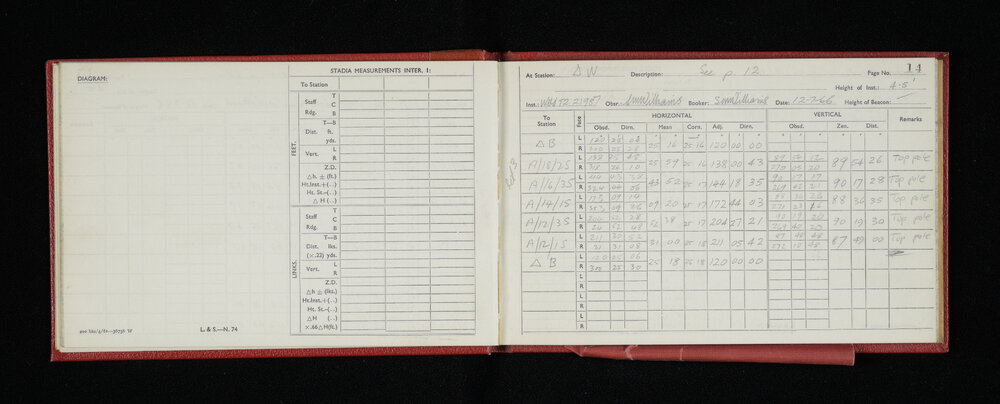 DIAGRAM:
STADIA MEASUREMENTS INTER. 1:
To Station
FEET.
Staff T
C
Rdg. B
T—B
Dist. ft.
yds.
Vert. L
R
Z.D.
△h ± (ft.)
Ht.Inst.+(..)
Ht. St.—(..)
△ H (..)
LINKS.
Staff T
C
Rdg. B
T—B
Dist. lks.
(×.22) yds.
Vert. L
R
Z.D.
△h ± (lks.)
Ht.Inst.+(..)
Ht. St.—(..)
△H (..)
×.66△H(ft.)
L. & S.—N. 74
14
At Station: △ W Description: See p 12 Page No.
Height of Inst.: 4.5'
Inst.: Wild T2 21987 Obsr. SmWilliams Booker: SmWilliams Date: 12-7-66 Height of Beacon: —
To Station Face HORIZONTAL VERTICAL Remarks
Obsd. Dirn. Mean Corn. Adj. Dirn. Obsd. Zen. Dist.
△ B L 120 25 04
R 300 25 28 25 16 25 16 120 00 00
A/18/2S L 138 25 48 89
R 318 26 10 25 59 25 16 138 00 43 270 05 20 89 54 26 Top pole
A/16/3S L 90 17 17
R 324 44 06 43 52 25 17 144 18 35 269 42 21 90 17 28 Top pole
A/14/1S L 173 09 14 88 36 26
R 353 09 26 09 20 25 17 172 44 03 271 23 16 88 36 35 Top pole
A/12/3S L 204 52 28 90 19 20
R 24 52 48 52 38 25 17 204 27 21 269 40 20 90 19 30 Top pole
A/12/1S L 211 30 52 87 48 48
R 31 31 08 31 00 25 18 211 05 42 272 10 48 87 49 00 Top pole
△ B L 120 25 06
R 300 25 30 25 18 25 18 120 00 00
L
R
L
R
L
R